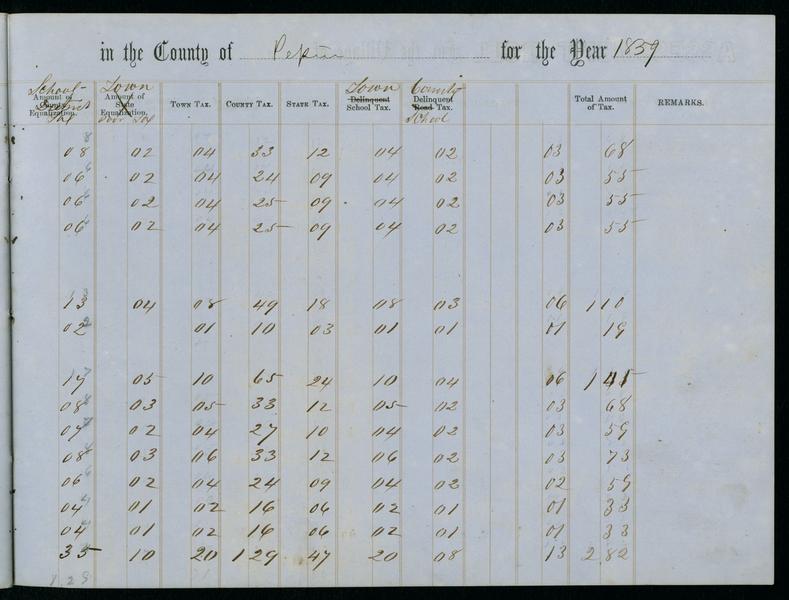 in the County of Pepin for the Year 1859
School District Tax Amount of Equalization.
Town Poor Tax Amount of State Equalization.
Town Tax.
County Tax.
State Tax.
Town Delinquent School Tax.
County Delinquent Road Tax. School
Total Amount of Tax.
Remarks.
08 02 04 33 12 04 02 03 68
06 02 04 24 09 04 02 03 55
06 02 04 25 09 04 02 03 55
06 02 04 25 09 04 02 03 55
13 04 08 49 18 08 03 06 1 10
02 01 10 03 01 01 01 19
17 05 10 65 24 10 04 06 1 41
08 03 05 33 12 05 02 03 68
07 02 04 27 10 04 02 03 59
08 03 06 33 12 06 02 03 73
06 02 04 24 09 04 02 02 59
04 01 02 16 06 02 01 01 33
04 01 02 16 06 02 01 01 33
35 10 20 1 29 47 20 08 13 2 82
1.28